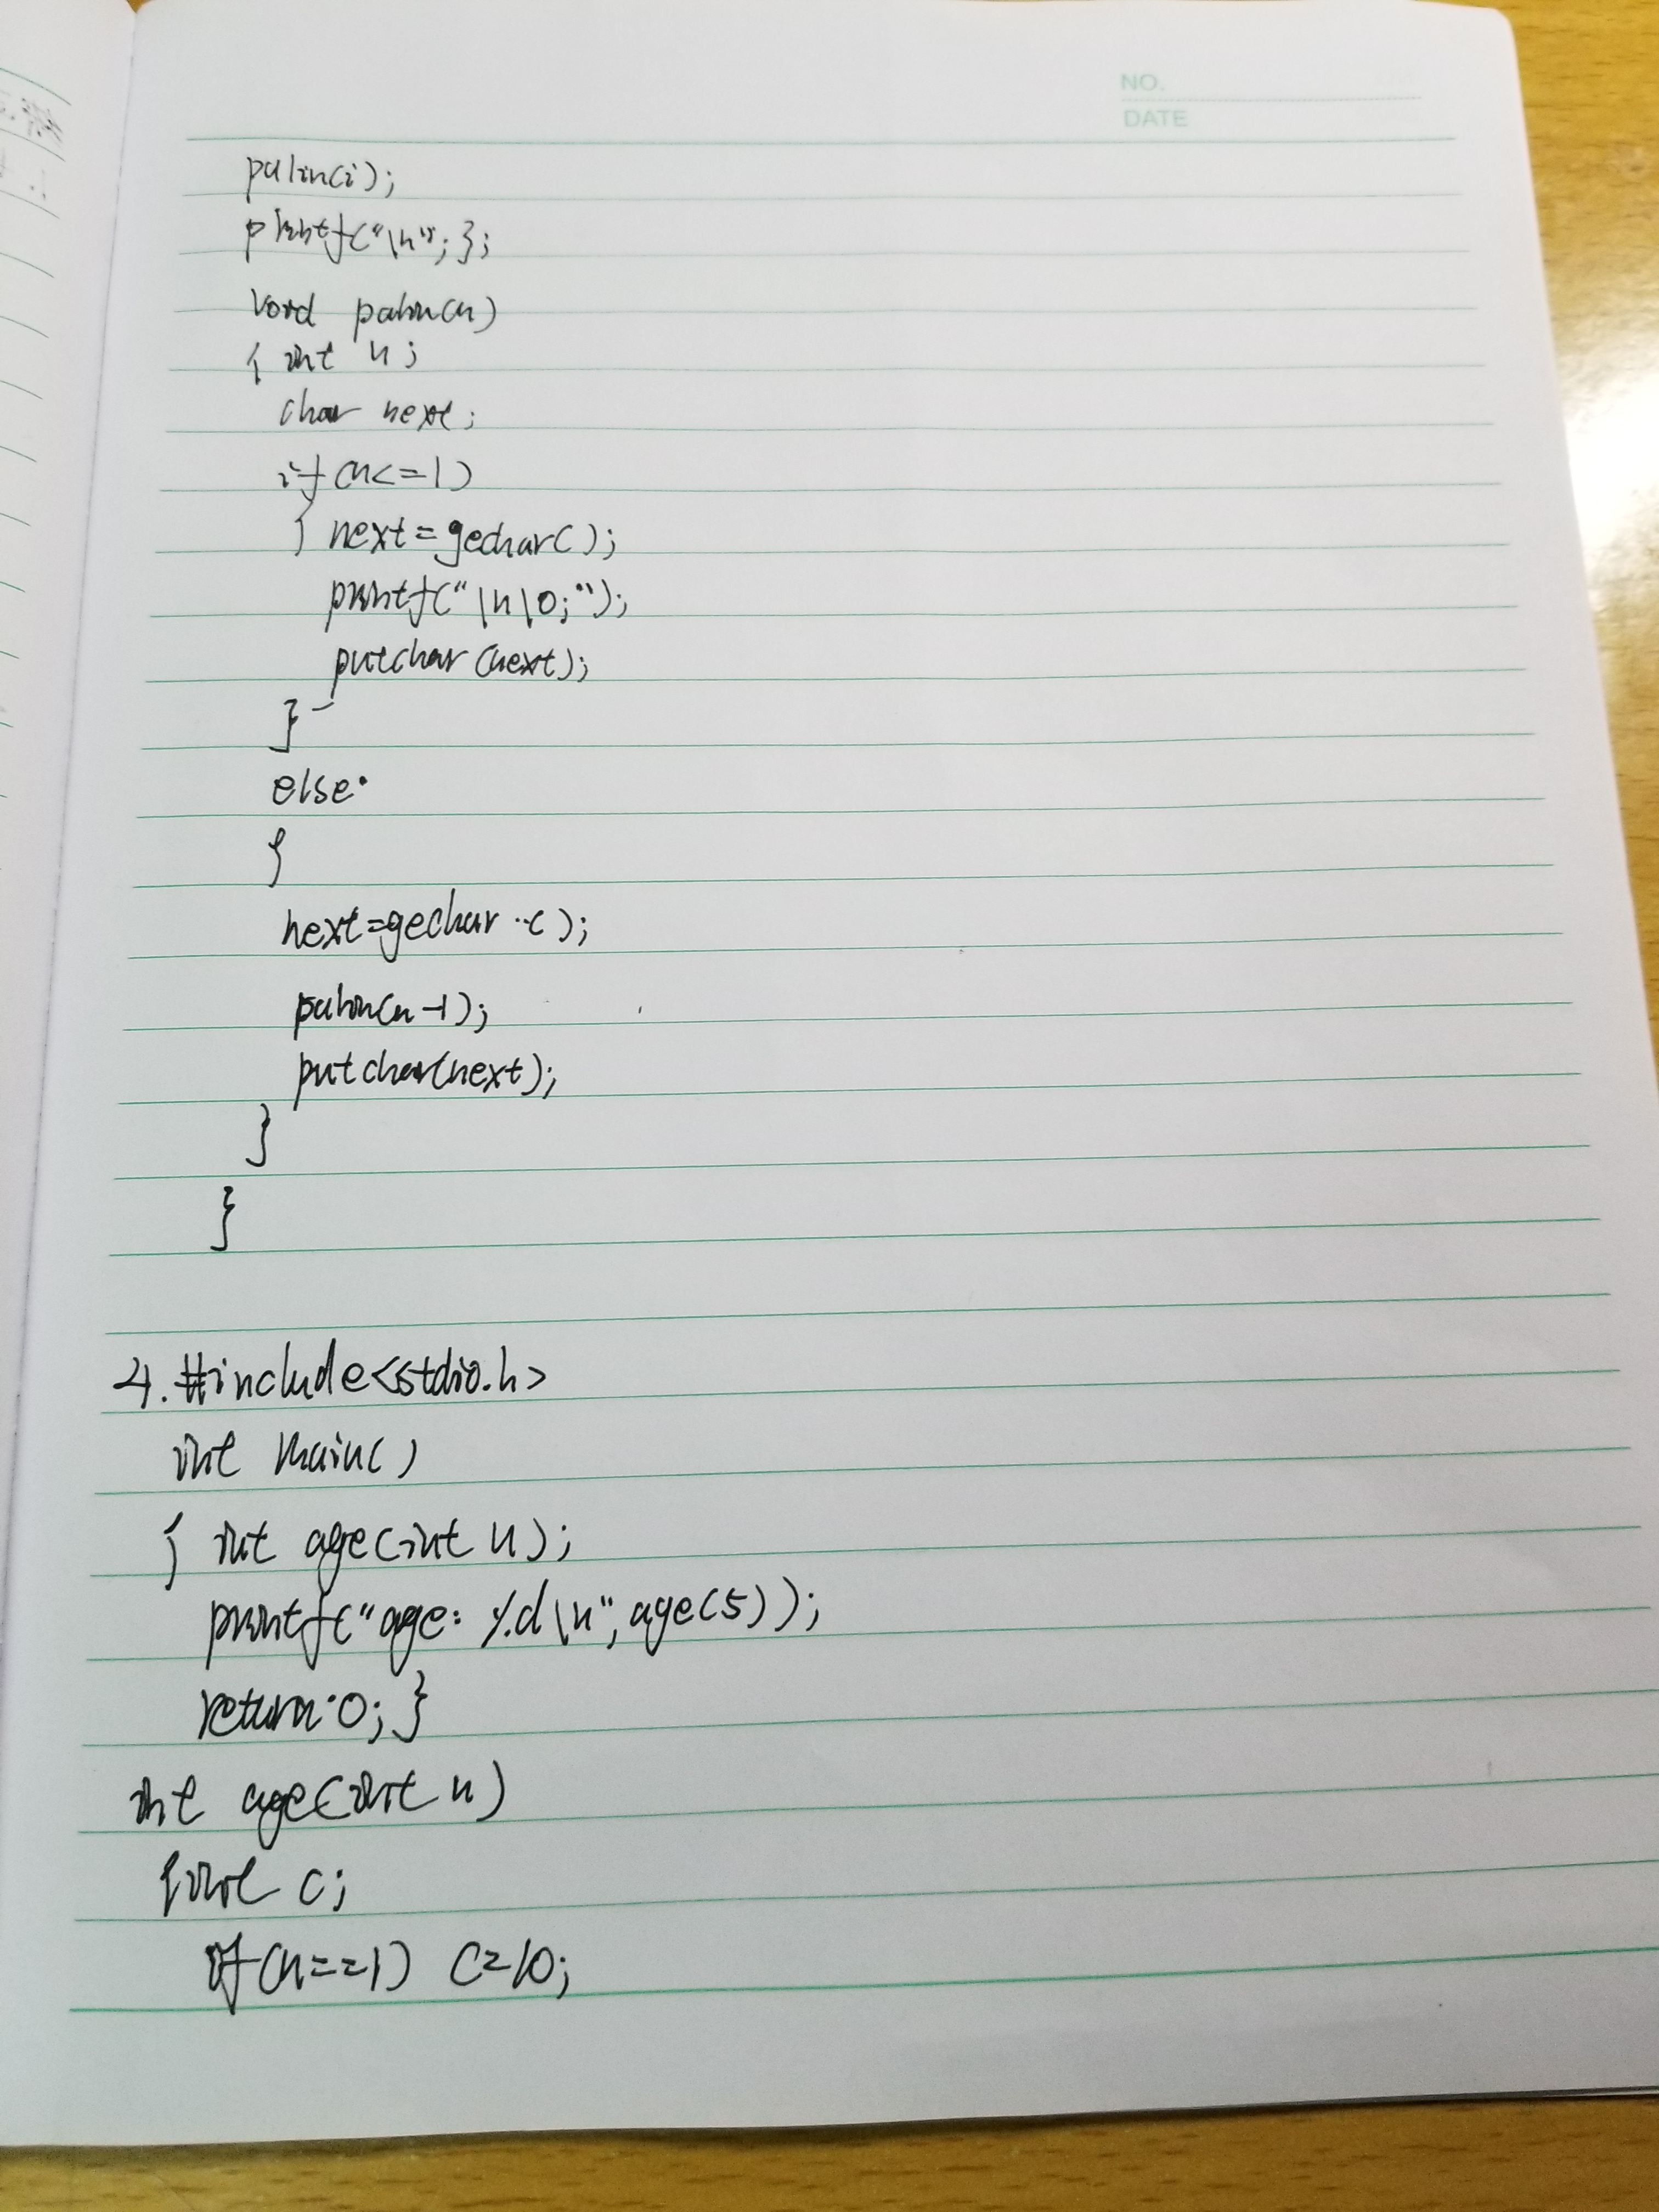 NO.
DATE
palin(i);
printf("\n"; };
void palin(n)
{ int n;
char next;
if(n<=1)
{ next=gechar();
printf("\n\0;");
putchar(next);
}
else
{
next=gechar();
palin(n-1);
putchar(next);
}
}
4. #include<stdio.h>
int main()
{ int age(int n);
printf("age: %d\n", age(5));
return 0; }
int age(int n)
{ int c;
if(n==1) c=10;